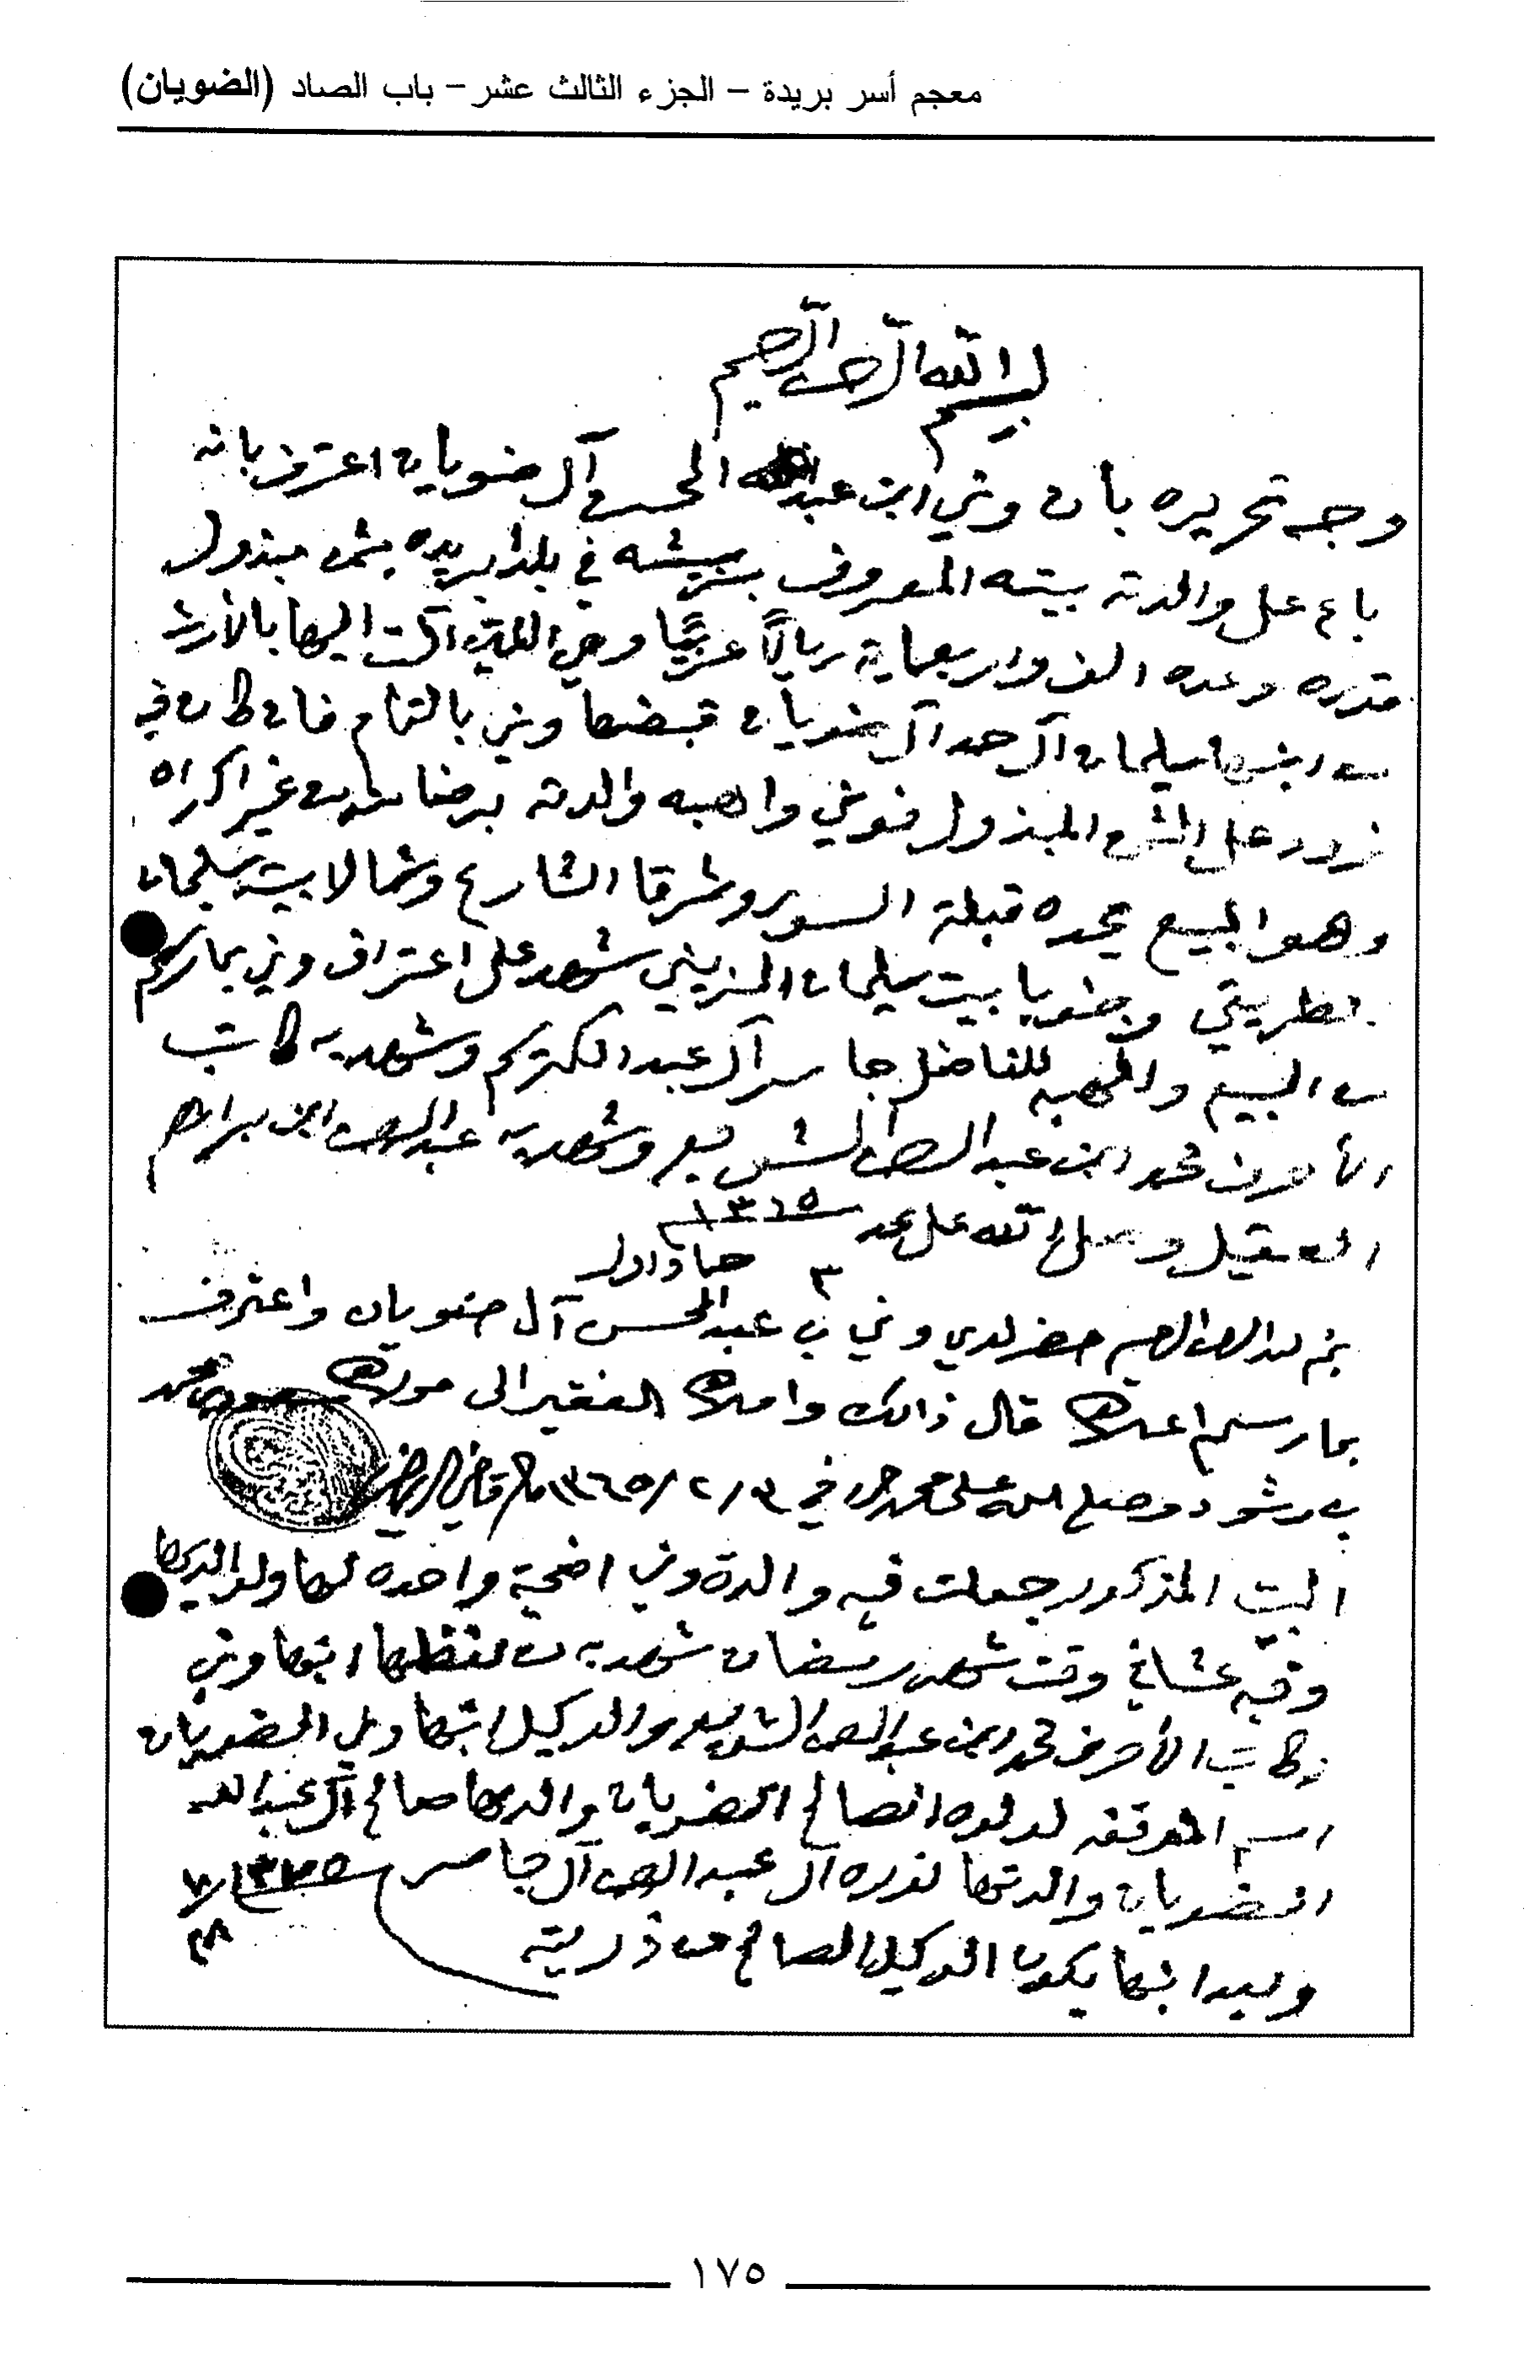 معجم أسر بريدة – الجزء الثالث عشر – باب الصاد (الضويان)
بسم الله الرحمن الرحيم
وجه تحريره بان وني ابن عبد المحسن آل ضويان اعترف بانه
باع على والدته بيته المعروف في بلد بريده بثمن مبذول
قدره وعده الف واربعماية ريالاً عربيًا وهي آلت اليها بالأرث
من ابنها سليمان آل حمد آل ضويان قبضها وني بالتمام فان كان في
زود على الثمن المبذول فوني واهبه والدته برضا من غير اكراه
وهو المبيع يحده قبلة السور وشرقا الشارع وشمالا بيت سليمان
وجنوبا بيت سليمان المزيني شهد على اعتراف وني بما رسم
من البيع والهبه للفاضل جاسر آل عبدالكريم وشهد به كاتب
الأحرف محمد ابن عبد الرحمن وشهد به عبدالرحمن ابن براهيم
العقيل وصلى الله على محمد ١٣٦٥
٣ جماد اول
حضر لدي وني بن عبدالمحسن آل ضويان واعترف
بما رسم اعلاه قال ذالك واملاه الفقير الى مولاه محمد
وصلى الله على محمد حرر في
البيت المذكور جعلت فيه والدة وني اضحية واحده لها ولوالديها
وفيه عشا في وقت شهر رمضان شهد به من لفظها ابنها وني
وكاتب الأحرف محمد ابن عبدالرحمن والوكيل ابنها وني الضويان
اسم الموقفه الصالح الضويان والدها صالح آل عبدالله
الضويان والدتها نوره آل عبدالرحمن آل جاسر ١٣٧٥
وبعد ابنها يكون الوكيل الصالح من ذريته
١٧٥